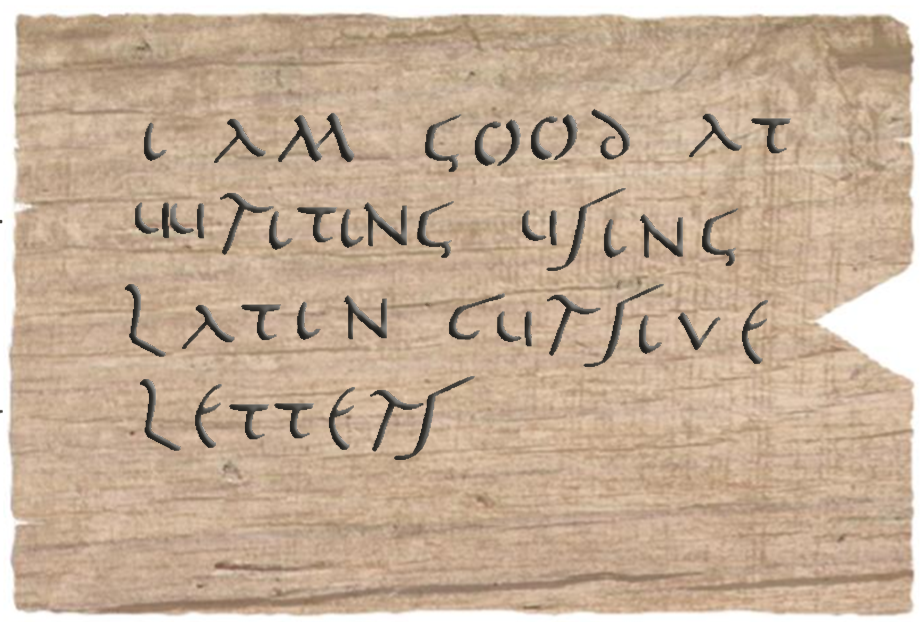 I AM GOOD AT
WRITING USING
LATIN CURSIVE
LETTERS